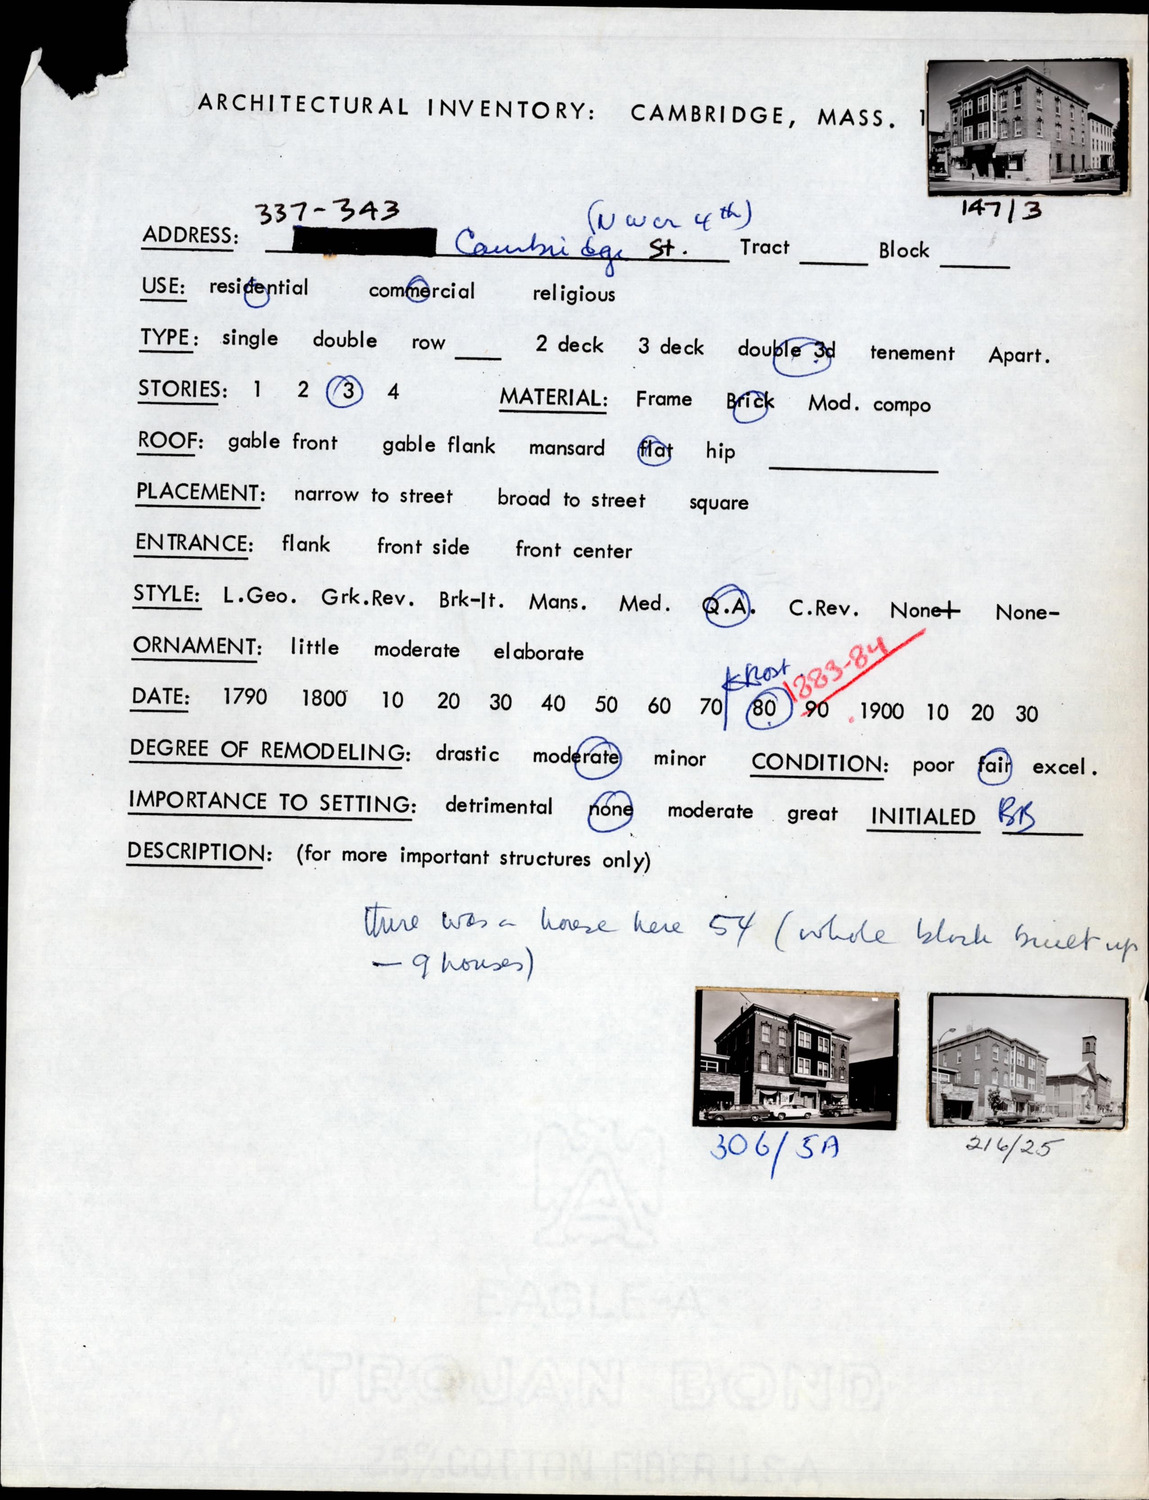 ARCHITECTURAL INVENTORY: CAMBRIDGE, MASS. 1
147/3
337-343
(NW cr 4th)
ADDRESS: Cambridge St. Tract Block
USE: residential commercial religious
TYPE: single double row 2 deck 3 deck double 3d tenement Apart.
STORIES: 1 2 3 4 MATERIAL: Frame Brick Mod. compo
ROOF: gable front gable flank mansard flat hip
PLACEMENT: narrow to street broad to street square
ENTRANCE: flank front side front center
STYLE: L.Geo. Grk.Rev. Brk-It. Mans. Med. Q.A. C.Rev. None+ None-
ORNAMENT: little moderate elaborate
post 1883-84
DATE: 1790 1800 10 20 30 40 50 60 70 80 90 1900 10 20 30
DEGREE OF REMODELING: drastic moderate minor CONDITION: poor fair excel.
IMPORTANCE TO SETTING: detrimental none moderate great INITIALED BB
DESCRIPTION: (for more important structures only)
there was a house here 54 (whole block built up
— 9 houses)
306/5A
216/25
EAGLE-A
TROJAN BOND
25% COTTON FIBER U.S.A